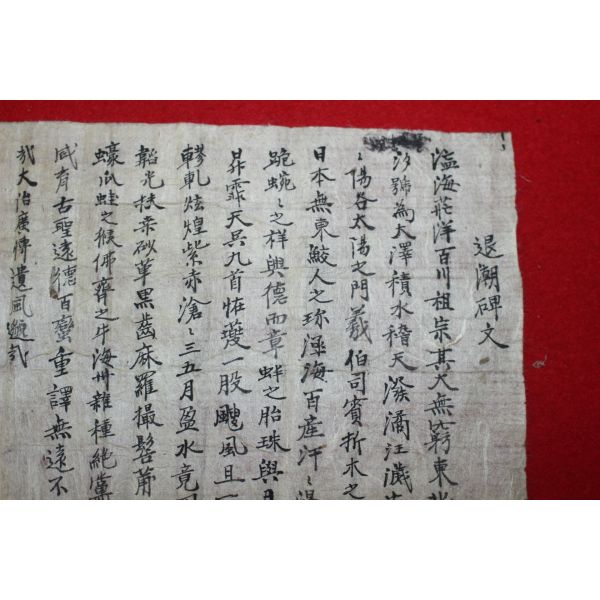 退潮碑文
海洋百川祖宗其大無窮東
汐號為大澤積水稽天潏汪濊
〻陽谷太陽之門羲伯司賓折木之
日本無東鮫人之珍海百産汗〻
跪蜿〻之祥與德而章蚌之胎珠與
昇霏天吳九首恠夔一股颷風且
轇軋炫煌紫赤滄〻三五月盈水竟
韜光扶桒砂華黑齒麻羅撮髻莆
蠔爪蛙之猴佛齊之牛海雜種絶黨
咸育古聖遠德百蠻重譯無遠不
哉大治廣傳遺風哉